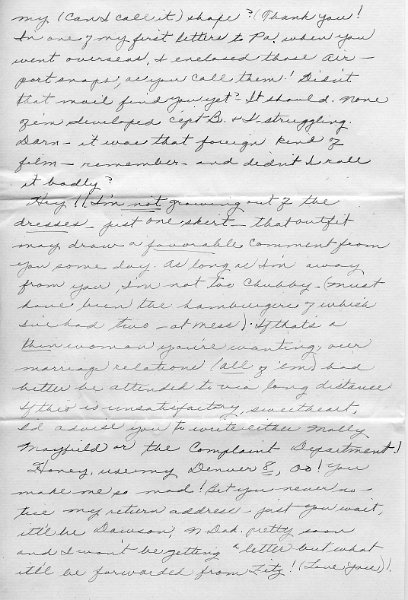 my (Can I call it) shape? (Thank you!
In one of my first letters to Pa. when you
went overseas, I enclosed those air-
port snaps, as you call them! Didn't
that mail find you yet? It should. None
of 'em developed cept B. & I struggling.
Darn - it was that foreign kind of
film - remember - and didn't I roll
it badly?
Hey!! I'm not growing out of the
dresses - just one skirt - that outfit
may draw a favorable comment from
you some day. As long as I'm away
from you I'm not too chubby. (Must
have been the hamburgers of which
I've had two - at mess). If that's a
thin woman you're wanting, our
marriage relations (all of 'em) had
better be attended to via long distance
If this is unsatisfactory, sweetheart,
I'd advise you to write either Molly
Mayfield or the Complaint Department)
Honey, use my Denver 8, oo! You
make me so mad! But you never no-
tice my return address - just you wait,
it'll be Dawson, N Dak. pretty soon
and I won't be getting a letter but what
it'll be forwarded from Fitz! (Love You)!